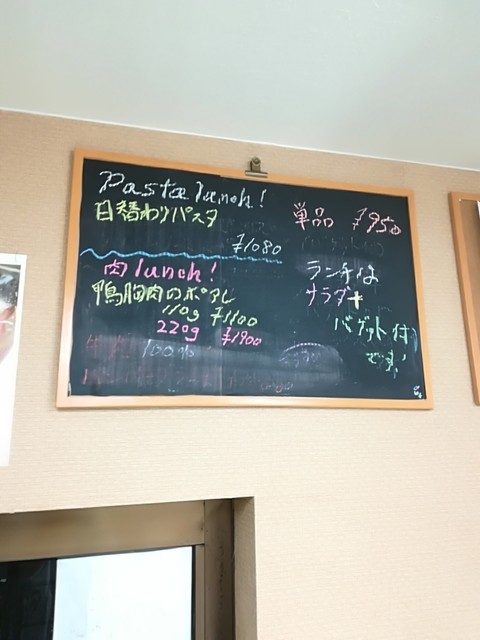 Pasta lunch!
日替わりパスタ
¥1080
肉 lunch!
鴨胸肉のポアレ
110g ¥1100
220g ¥1900
100%
単品 ¥950
ランチは
サラダ+
バゲット付
です!